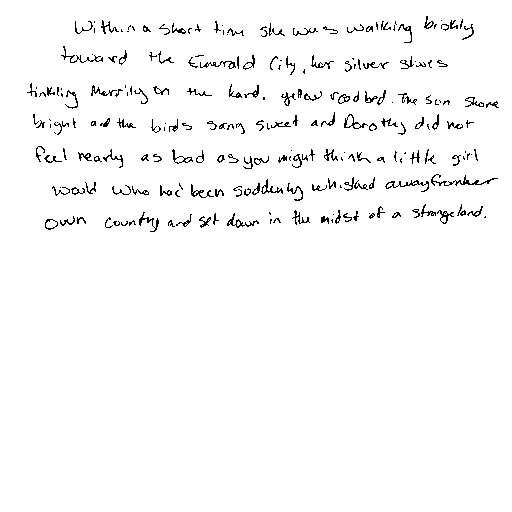 Within a short time she was walking briskly
toward the Emerald City, her silver shoes
tinkling merrily on the hard, yellow roadbed. The sun shone
bright and the birds sang sweet and Dorothy did not
feel nearly as bad as you might think a little girl
would who had been suddenly whisked away from her
own country and set down in the midst of a strange land.